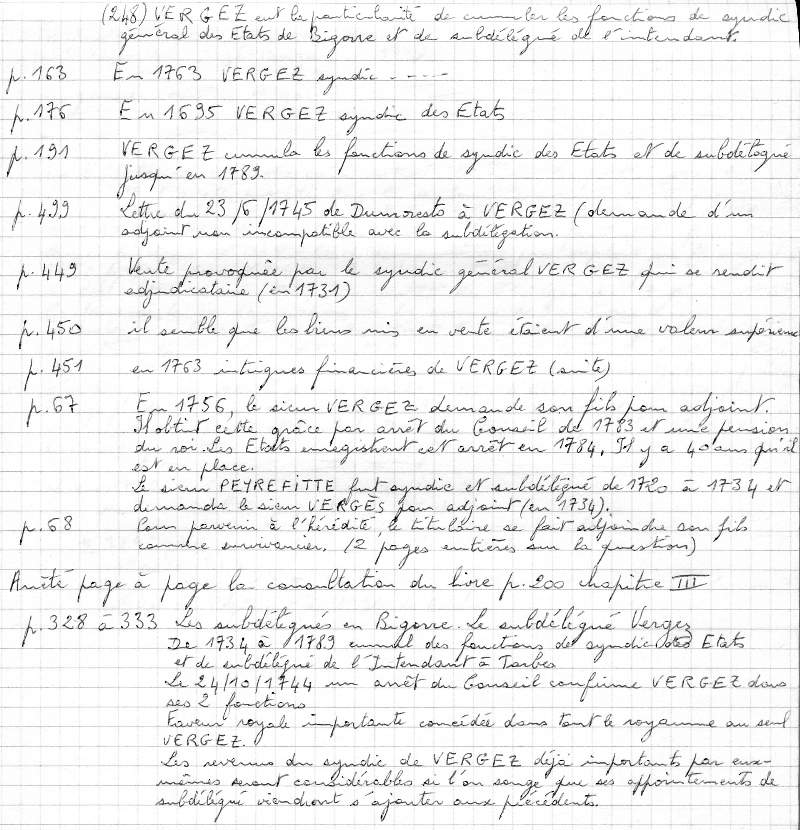 (248) VERGEZ eut la particularité de cumuler les fonctions de syndic
général des Etats de Bigorre et de subdélégué de l'intendant.
p.163 En 1763 VERGEZ syndic - - - - -
p.176 En 1695 VERGEZ syndic des Etats
p.191 VERGEZ cumula les fonctions de syndic des Etats et de subdélégué
jusqu'en 1789.
p.499 Lettre du 23/6/1745 de Dumorests à VERGEZ (demande d'un
adjoint non incompatible avec la subdélégation.
p.449 Vente provoquée par le syndic général VERGEZ qui se rendit
adjudicataire (en 1731)
p.450 il semble que les biens mis en vente étaient d'une valeur supérieure
p.451 en 1763 intrigues financières de VERGEZ (suite)
p.67 En 1756, le sieur VERGEZ demande son fils pour adjoint.
Il obtint cette grâce par arrêt du Conseil de 1783 et une pension
du roi. Les Etats enregistrent cet arrêt en 1784. Il y a 40 ans qu'il
est en place.
Le sieur PEYREFITTE fut syndic et subdélégué de 1720 à 1734 et
demanda le sieur VERGÈS pour adjoint (en 1734).
p.68 Pour parvenir à l'hérédité, le titulaire se fait adjoindre son fils
comme survivancier. (2 pages entières sur la question)
Arrêté page à page la consultation du livre p.200 chapitre III
p.328 à 333 Les subdélégués en Bigorre. Le subdélégué Vergez
De 1734 à 1789 cumul des fonctions de syndic des Etats
et de subdélégué de l'Intendant à Tarbes
Le 24/10/1744 un arrêt du Conseil confirme VERGEZ dans
ses 2 fonctions
Faveur royale importante concédée dans tout le royaume au seul
VERGEZ.
Les revenus du syndic de VERGEZ déjà importants par eux-
mêmes seront considérables si l'on songe que ses appointements de
subdélégué viendront s'ajouter aux précédents.